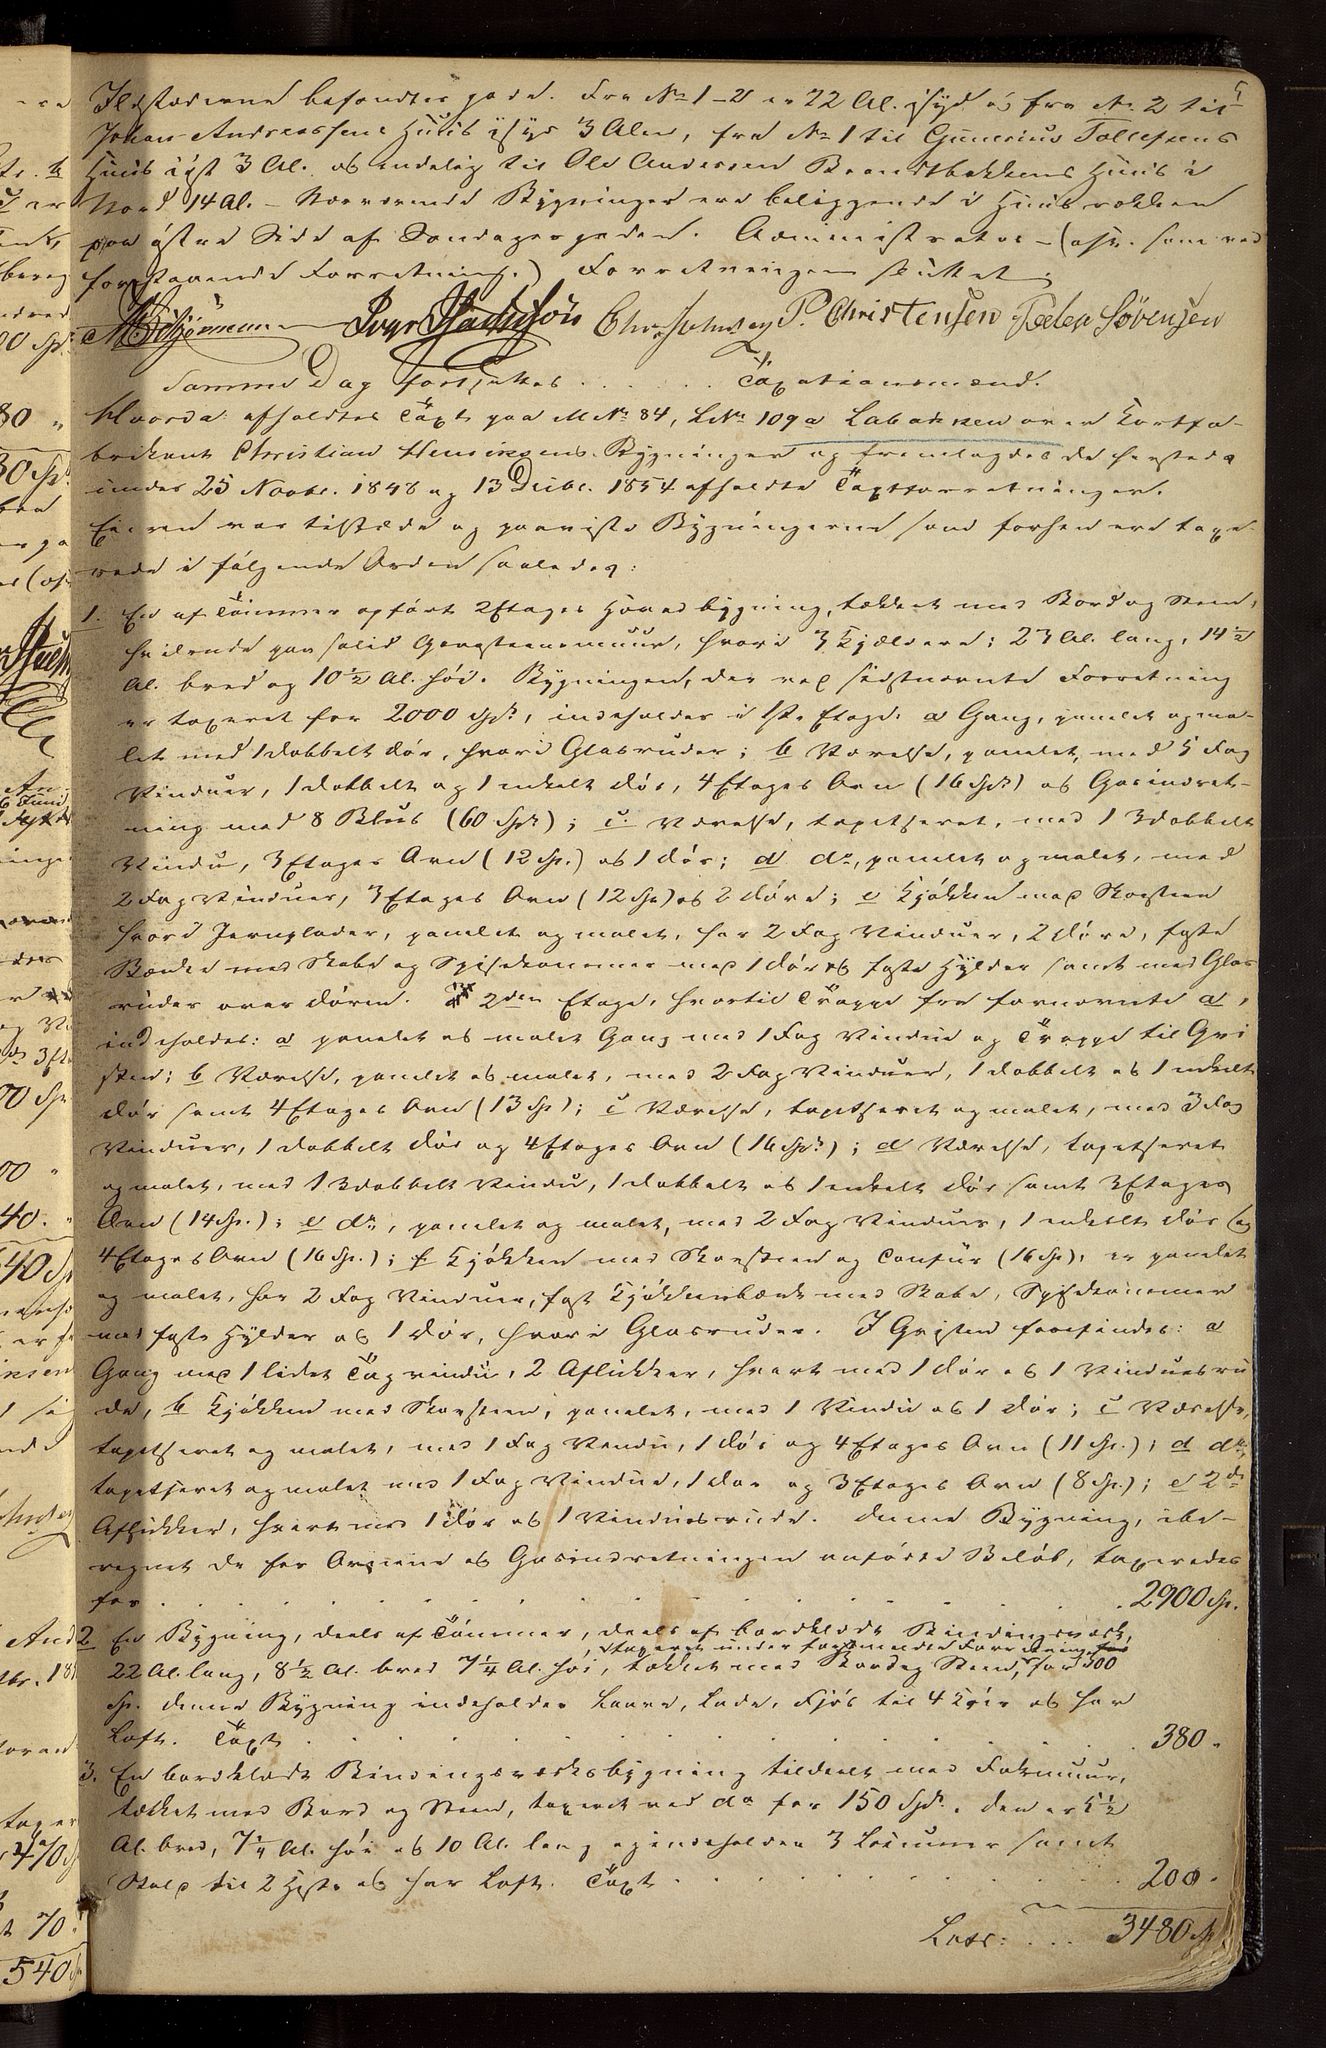 Ildstederne befandtes gode. Fra No 1-2 er 22 Al. i Syd og fra No 2 til
Johan Andreassens Huus i Syd 3 Alen, fra No 1 til Gunerius Tollefsens
Huus i Øst 3 Al. og endelig til Ole Andersen Brandtbakkens Huus i
Nord 14 Al. – Nærværende Bygninger ere beliggende i Huusrækken
paa østre Side af Søndagsgaden. Administrator – (osv. som ved
forestaaende Forretning.) Forretningen sluttet.
Iver Chr. Johnsen P. Christensen Peder Sörensen
Samme Dag fortsattes . . . . . . Taxationsmænd.
Hvorda afholdtes Taxt paa MNo 84, LNo 109a Labakken over Kortfa-
brikant Christian Henriksens Bygninger og fremlagdes de hersteds
under 25 Novbr. 1848 og 13 Decbr. 1854 afholdte Taxtforretninger.
Eieren var tilstæde og paaviste Bygningerne som forhen ere taxe-
rede i følgende Orden saaledes:
1. En af Tømmer opført 2 Etages Hovedbygning, tækket med Bord og Steen,
hvilende paa solid Graasteensmuur, hvori 3 Kjældere; 23 Al. lang, 14½
Al. bred og 10½ Al. høi. Bygningen, der ved sidstnævnte Forretning
er taxeret for 2000 Spd., indeholder i 1ste Etage: a Gang, panelet og ma-
let med 1 dobbelt Dør, hvori Glasruder; b Værelse, panelet, med 5 Fag
Vinduer, 1 dobbelt og 1 enkelt Dør, 4 Etages Ovn (16 Spd.) og Gasindret-
ning med 8 Blus (60 Spd.); c Værelse, tapetseret, med 1 3dobbelt
Vindu, 3 Etages Ovn (12 Sp.) og 1 Dør; d do, panelet og malet, med
2 Fag Vinduer, 3 Etages Ovn (12 Sp.) og 2 Døre; e Kjøkken med Skorsteen
hvori Jernplader, panelet og malet, har 2 Fag Vinduer, 2 Døre, faste
Bænke med Skabe og Spisekammer med 1 Dør og faste Hylder samt med Glas-
ruder over Døren. I 2den Etage, hvortil Trappe fra fornævnte a,
indeholdes: a panelet og malet Gang med 1 Fag Vindue og Trappe til Qvi-
sten; b Værelse, panelet og malet, med 2 Fag Vinduer, 1 dobbelt og 1 enkelt
Dør samt 4 Etages Ovn (13 Sp); c Værelse, tapetseret og malet, med 3 Fag
Vinduer, 1 dobbelt Dør og 4 Etages Ovn (16 Spd.); d Værelse, tapetseret
og malet, med 1 3dobbelt Vindu, 1 dobbelt og 1 enkelt Dør samt 3 Etages
Ovn (14 Sp.); e do, panelet og malet, med 2 Fag Vinduer, 1 enkelt Dør og
4 Etages Ovn (16 Sp.); f Kjøkken med Skorsteen og Comfur (16 Sp), er panelet
og malet, har 2 Fag Vinduer, fast Kjøkkenbænk med Skabe, Spisekammer
med faste Hylder og 1 Dør, hvori Glasruder. I Qvisten forefindes: a
Gang med 1 lidet Tagvindu, 2 Aflukker, hvert med 1 Dør og 1 Vinduesru-
de, b Kjøkken med Skorsteen, panelet, med 1 Vindu og 1 Dør; c Værelse,
tapetseret og malet, med 1 Fag Vindu, 1 Dør og 4 Etages Ovn (11 Sp.); d do
tapetseret og malet med 1 Fag Vindue, 1 Dør og 3 Etages Ovn (8 Sp.); e 2de
Aflukker, hvert med 1 Dør og 1 Vinduesrude. Denne Bygning, ibe-
regnet de for Ovnene og Gasindretningen anførte Beløb, taxeredes
for . . . . . . . . . . 2900 Sp.
2 En Bygning, deels af Tømmer, deels af bordklædt Bindingsværk,
, taxeret under fornævnte Forretning
22 Al. lang, 8½ Al. bred 7¼ Al. høi, tækket med Bord og Steen, for 300
Sp. Denne Bygning indeholder Laave, Lade, Fjøs til 4 Køer og har
Loft. Taxt . . . . . . . . . . 380 "
3. En bordklædt Bindingsværksbygning tildeels med Fakmuur,
tækket med Bord og Steen, taxeret ved do for 150 Spd., den er 5½
Al. bred, 7¼ Al. høi og 10 Al. lang og indeholder 3 Locummer samt
Stald til 2 Heste og har Loft. Taxt . . . . . . . . 200 "
Lats: . . . 3480 Sp